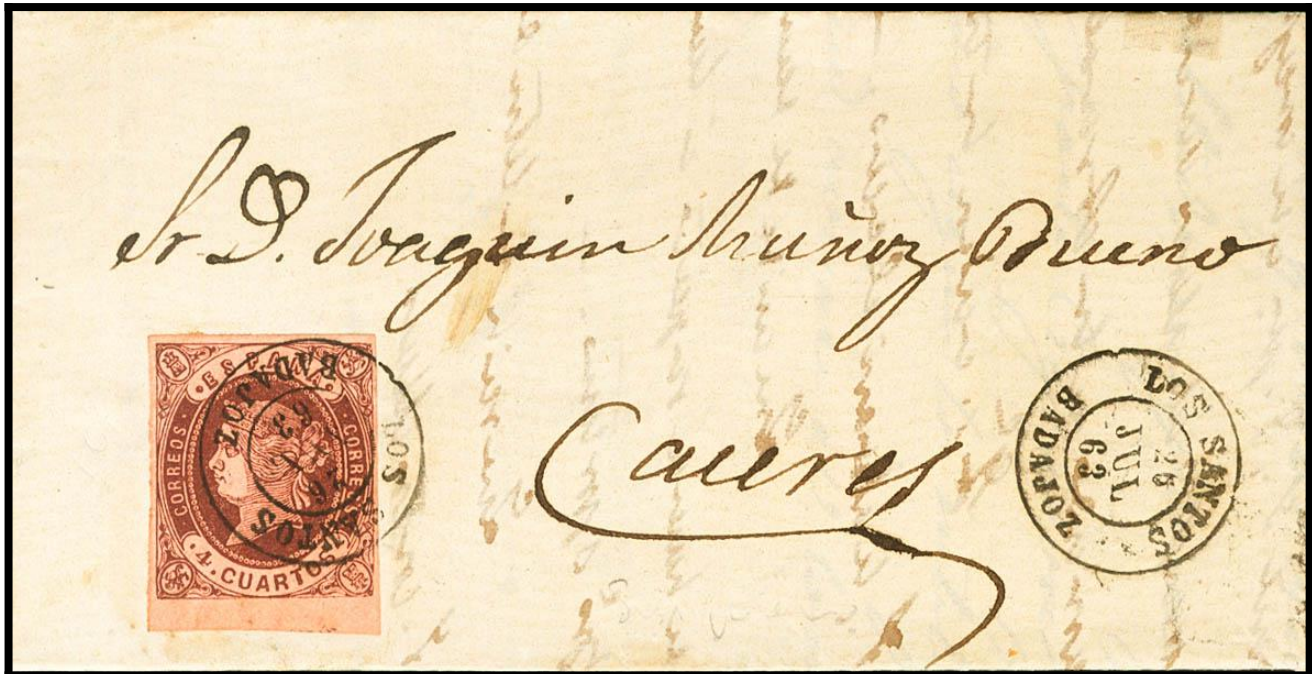 Sr. D. Joaquin Muñoz Bueno
Caceres
·ESPAÑA·
CORREOS·
·CORREOS
·4·CUARTOS·
LOS SANTOS
BADAJOZ
63
LOS SANTOS
26
JUL
63
BADAJOZ